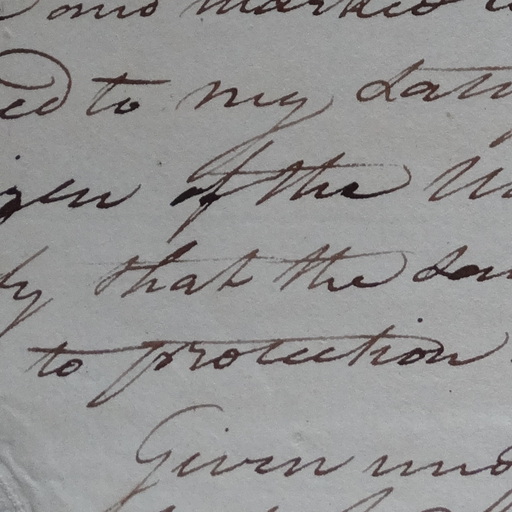 and marked
ed to my satis
izen of the Un
fy that the sai
to protection
Given und